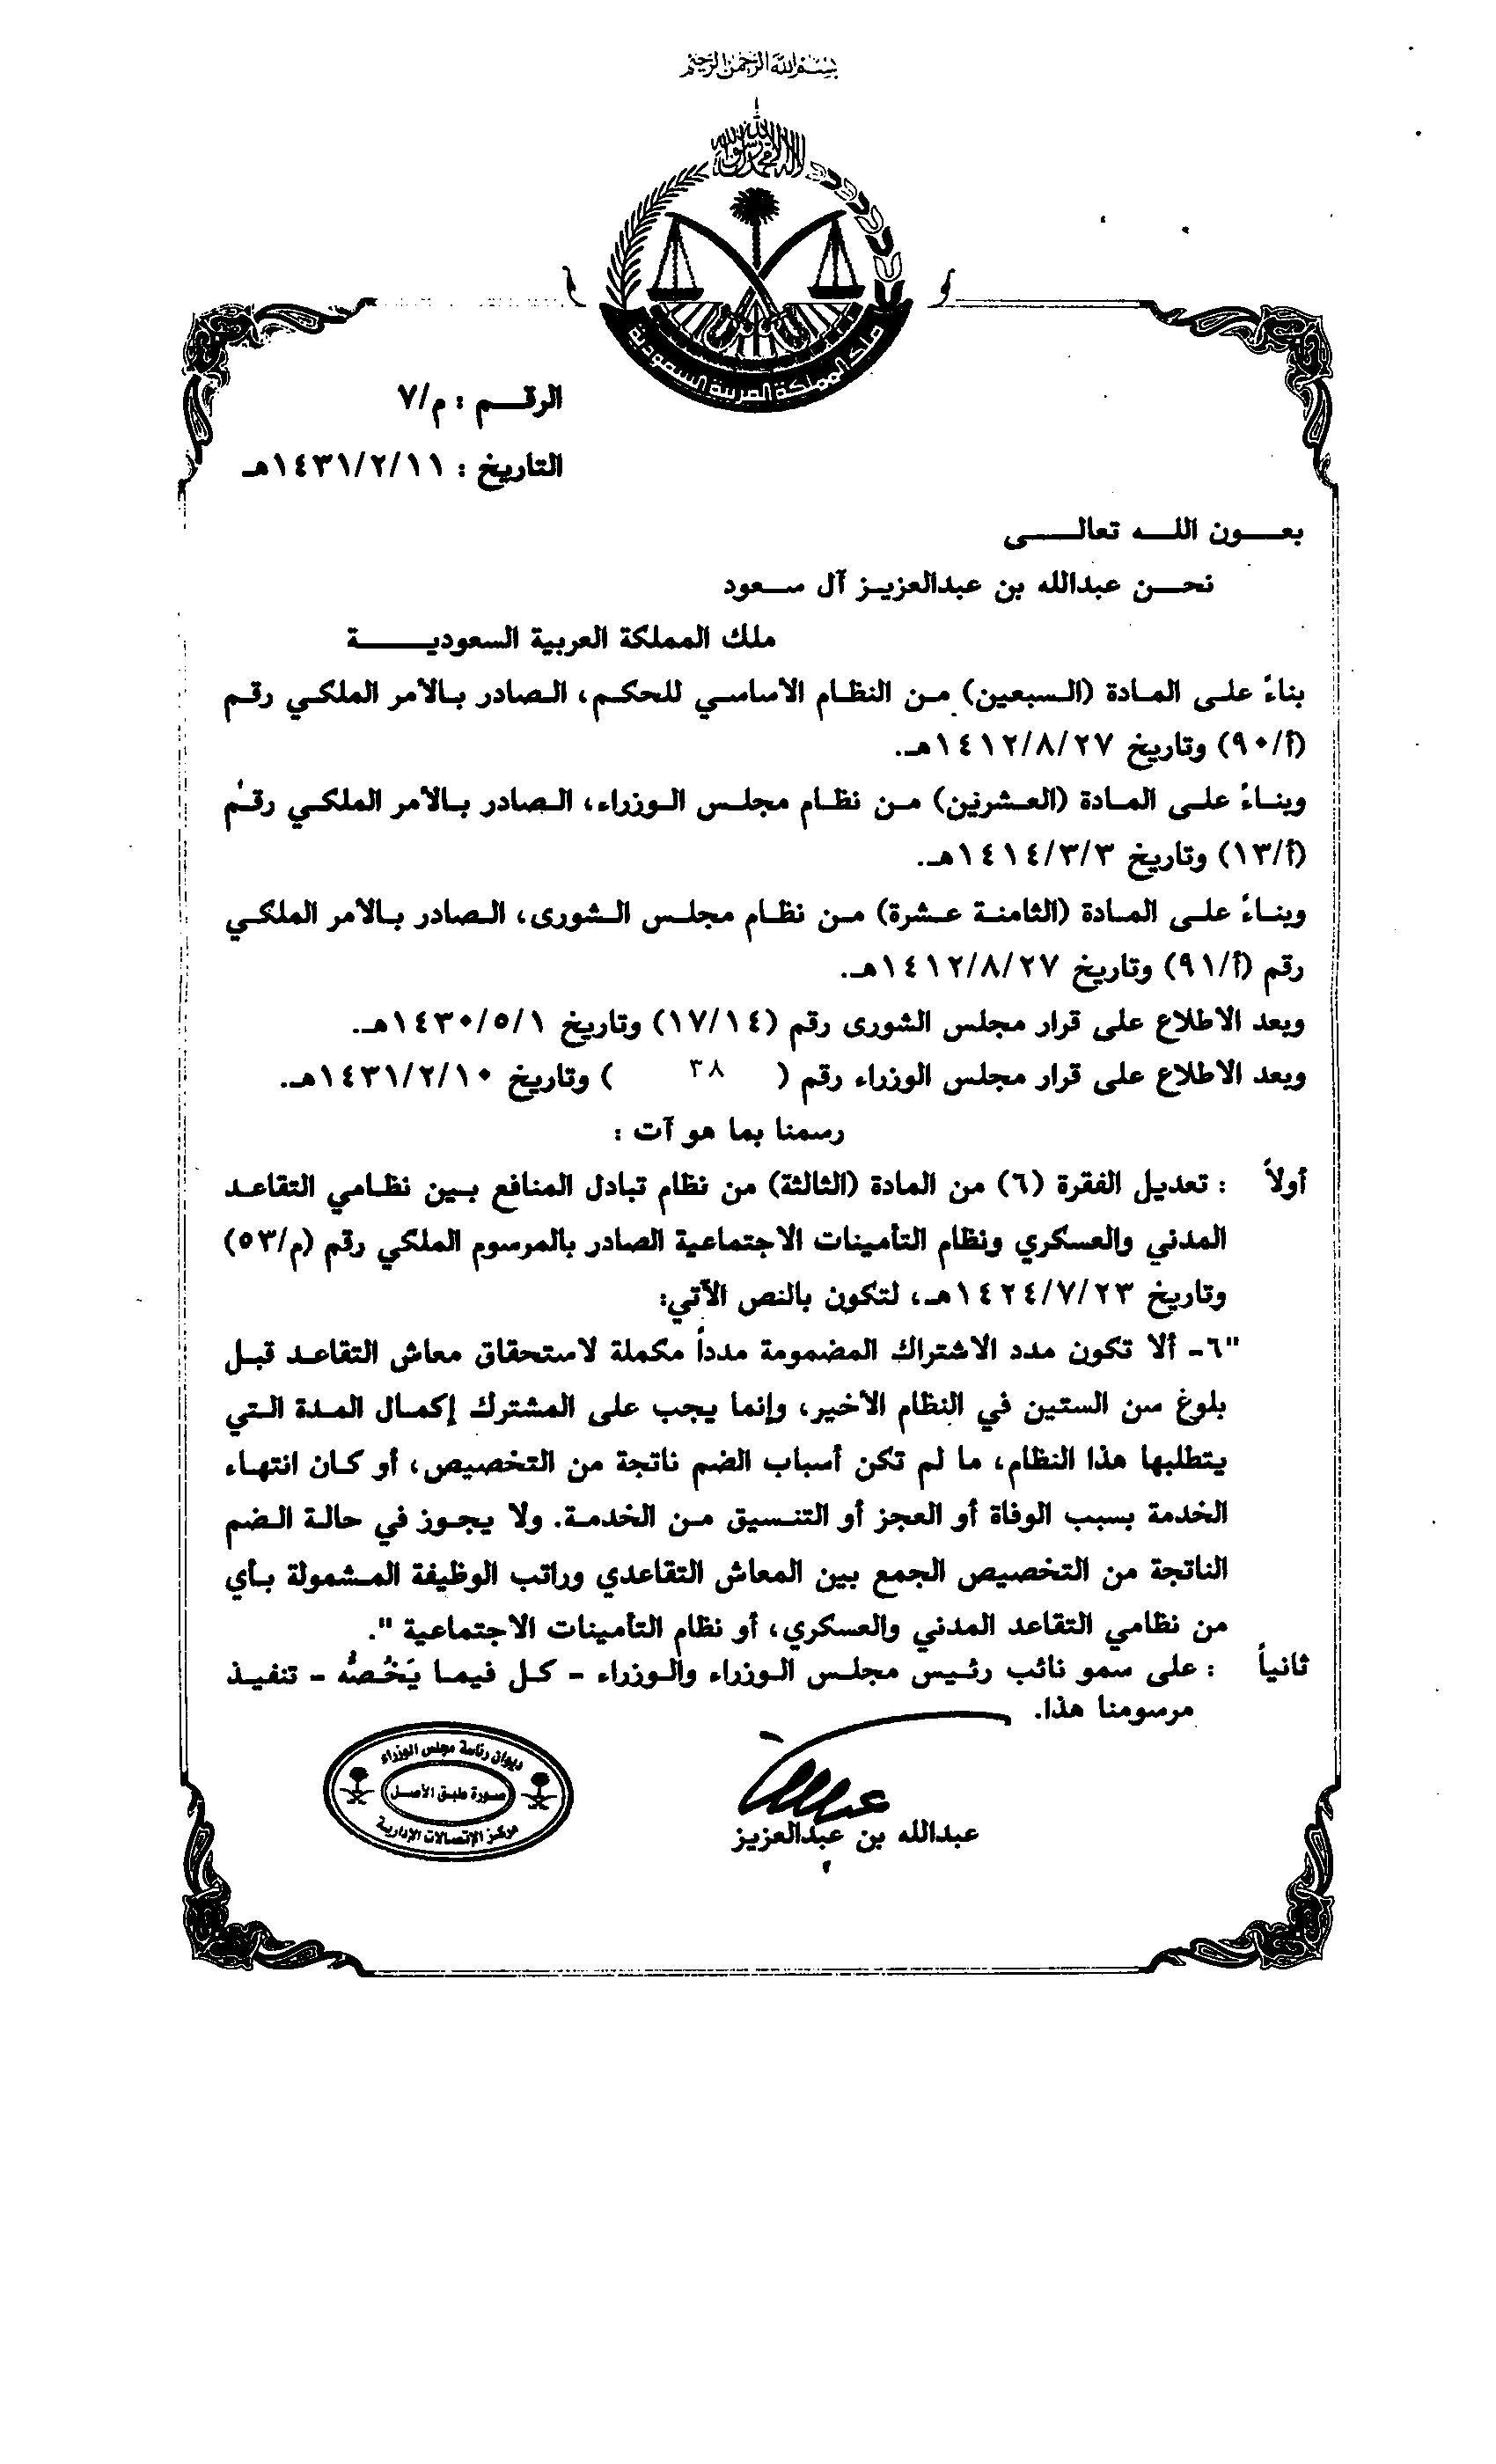 بسم الله الرحمن الرحيم
لا إله إلا الله محمد رسول الله
ملك المملكة العربية السعودية
الرقـــم : م/٧
التاريخ : ١٤٣١/٢/١١هـ
بعـــون اللـــه تعالـــى
نحـــن عبدالله بن عبدالعزيـز آل سـعود
ملك المملكة العربية السعوديـــــة
بناءً على المادة (السبعين) من النظام الأساسي للحكم، الصادر بالأمر الملكي رقم
(أ/٩٠) وتاريخ ١٤١٢/٨/٢٧هـ.
وبناءً على المادة (العشرين) من نظام مجلس الوزراء، الصادر بالأمر الملكي رقم
(أ/١٣) وتاريخ ١٤١٤/٣/٣هـ.
وبناءً على المادة (الثامنة عشرة) من نظام مجلس الشورى، الصادر بالأمر الملكي
رقم (أ/٩١) وتاريخ ١٤١٢/٨/٢٧هـ.
وبعد الاطلاع على قرار مجلس الشورى رقم (١٧/١٤) وتاريخ ١٤٣٠/٥/١هـ.
وبعد الاطلاع على قرار مجلس الوزراء رقم ( ٣٨ ) وتاريخ ١٤٣١/٢/١٠هـ.
رسمنا بما هو آت :
أولاً : تعديل الفقرة (٦) من المادة (الثالثة) من نظام تبادل المنافع بين نظامي التقاعد
المدني والعسكري ونظام التأمينات الاجتماعية الصادر بالمرسوم الملكي رقم (م/٥٣)
وتاريخ ١٤٢٤/٧/٢٣هـ، لتكون بالنص الآتي:
"٦- ألا تكون مدد الاشتراك المضمومة مدداً مكملة لاستحقاق معاش التقاعد قبل
بلوغ سن الستين في النظام الأخير، وإنما يجب على المشترك إكمال المدة التي
يتطلبها هذا النظام، ما لم تكن أسباب الضم ناتجة من التخصيص، أو كان انتهاء
الخدمة بسبب الوفاة أو العجز أو التنسيق من الخدمة. ولا يجوز في حالة الضم
الناتجة من التخصيص الجمع بين المعاش التقاعدي وراتب الوظيفة المشمولة بأي
من نظامي التقاعد المدني والعسكري، أو نظام التأمينات الاجتماعية ".
ثانياً : على سمو نائب رئيس مجلس الوزراء والوزراء - كل فيما يَخُصُّه - تنفيذ
مرسومنا هذا.
عبدالله
عبدالله بن عبدالعزيز
ديوان رئاسة مجلس الوزراء
صورة طبق الأصل
مركز الإتصالات الإدارية